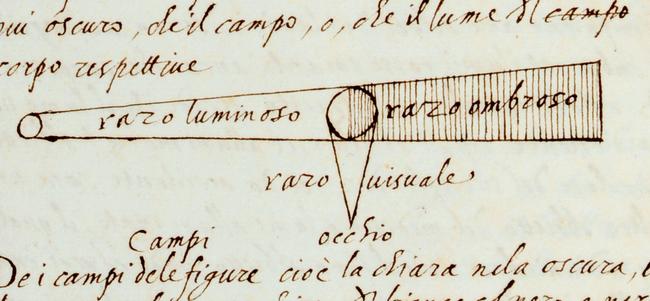 piu oscuro, che il campo, o, che il lume dl campo
corpo respettiue
razo luminoso
razo ombroso
razo uisuale
occhio
Campi
De i campi dele figure cioè la chiara nela oscura,